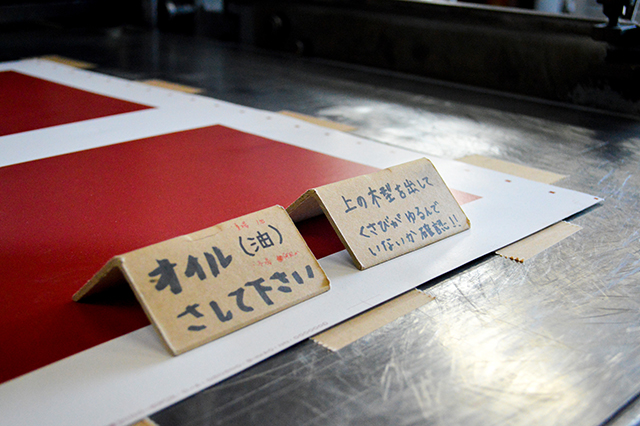 オイル(油)
さして下さい
上の木型を出して
くさびがゆるんで
いないか確認!!